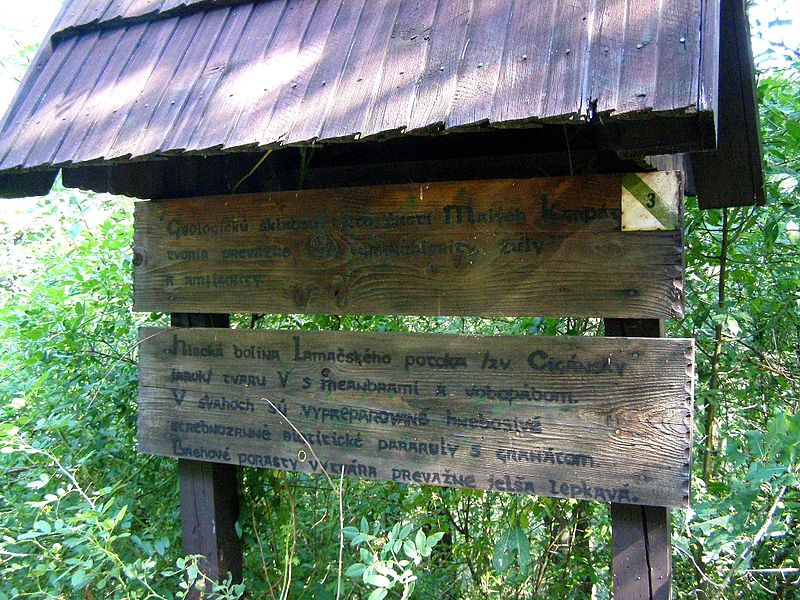 3
Geologickú skladbu Malých Karpát
tvoria prevažne žuly
a amfibolity.
Riečka dolina Lamačského potoka /zv Cigánsky
jarok/ tvaru V s meandrami a vodopádom.
V svahoch sú vypreparované hnedosivé
strednozrnné biotitické pararuly s granátom.
Brehové porasty vytvára prevažne jelša lepkavá.